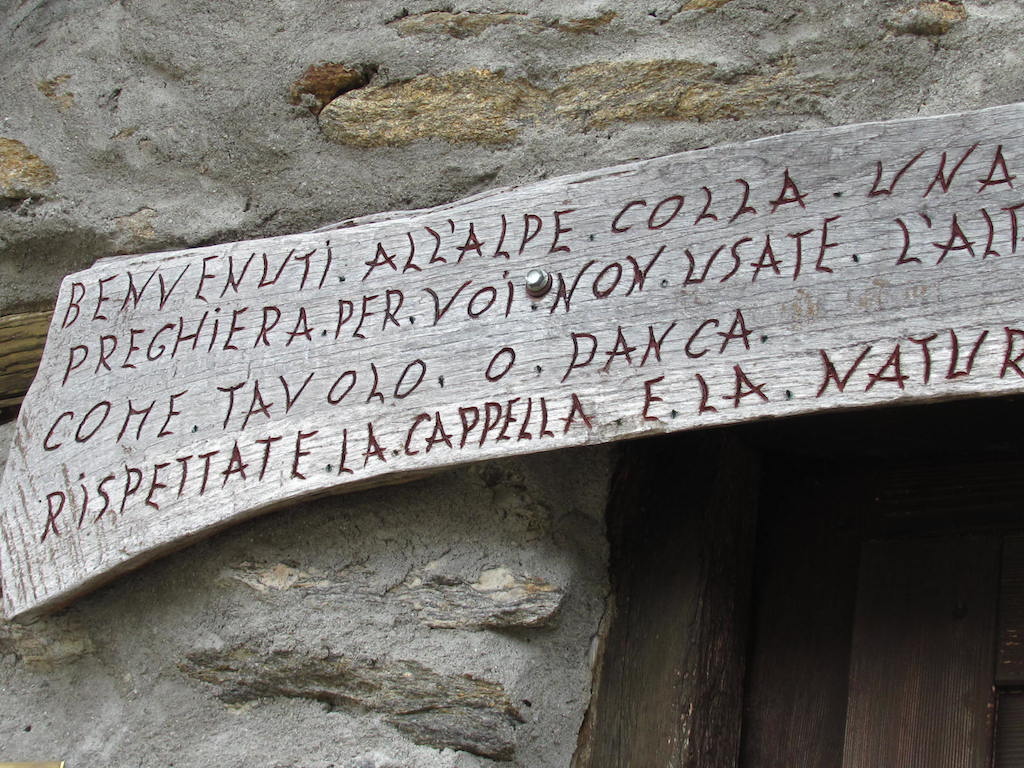 BENVENUTI. ALL'ALPE. COLLA. UNA
PREGHIERA. PER. VOI. NON. USATE. L'ALT
COME. TAVOLO. O. PANCA.
RISPETTATE. LA. CAPPELLA. E. LA. NATUR